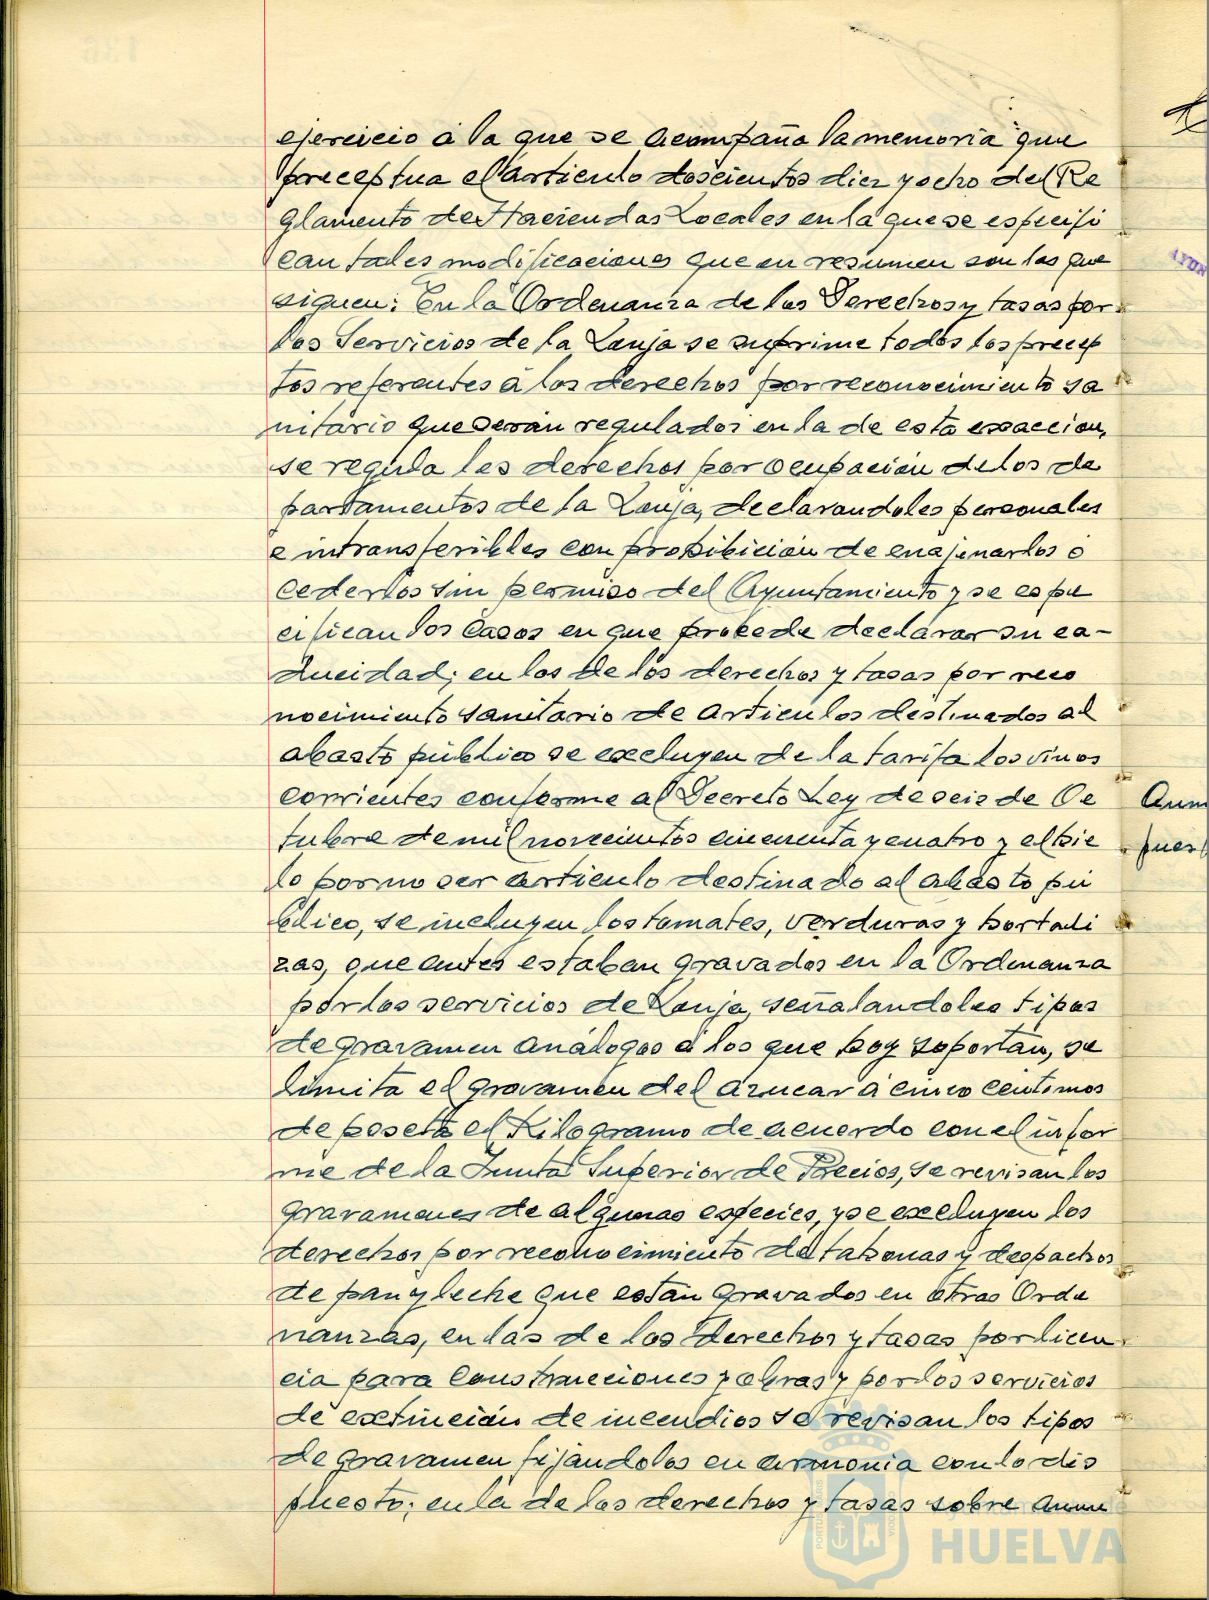 ejercicio á la que se acompaña la memoria que
preceptua el articulo doscientos diez y ocho del Re
glamento de Haciendas Locales en la que se especifi
can tales modificaciones que en resumen son las que
siguen: En la Ordenanza de los Derechos y tasas por
los Servicios de la Lonja se suprime todos los precep
tos referentes á los derechos por reconocimiento sa
nitario que seran regulados en la de esta exaccion,
se regula los derechos por ocupación de los de
partamentos de la Lonja, declarandoles personales
e intransferibles con prohibición de enajenarlos ó
cederlos sin permiso del Ayuntamiento y se espe
cifican los casos en que procede declarar su ca-
ducidad; en las de los derechos y tasas por reco
nocimiento sanitario de articulos destinados al
abasto público se excluyen de la tarifa los vinos
corrientes conforme al Decreto Ley de seis de Oc
tubre de mil novecientos cincuenta y cuatro y el hie
lo por no ser articulo destinado al abasto pú
blico, se incluyen los tomates, verduras y hortali
zas, que antes estaban gravados en la Ordenanza
por los servicios de Lonja, señalandoles tipos
de gravamen análogos á los que hoy soportan, se
limita el gravamen del azucar á cinco centimos
de peseta el Kilogramo de acuerdo con el infor
me de la Junta Superior de Precios, se revisan los
gravamenes de algunas especies, y se excluyen los
derechos por reconocimiento de tahonas y despachos
de pan y leche que estan gravados en otras Orde
nanzas, en las de los derechos y tasas por licen
cia para construcciones y obras y por los servicios
de extinción de incendios se revisan los tipos
de gravamen fijándolos en armonia con lo dis
puesto; en la de los derechos y tasas sobre anun
Ayuntamiento de
HUELVA